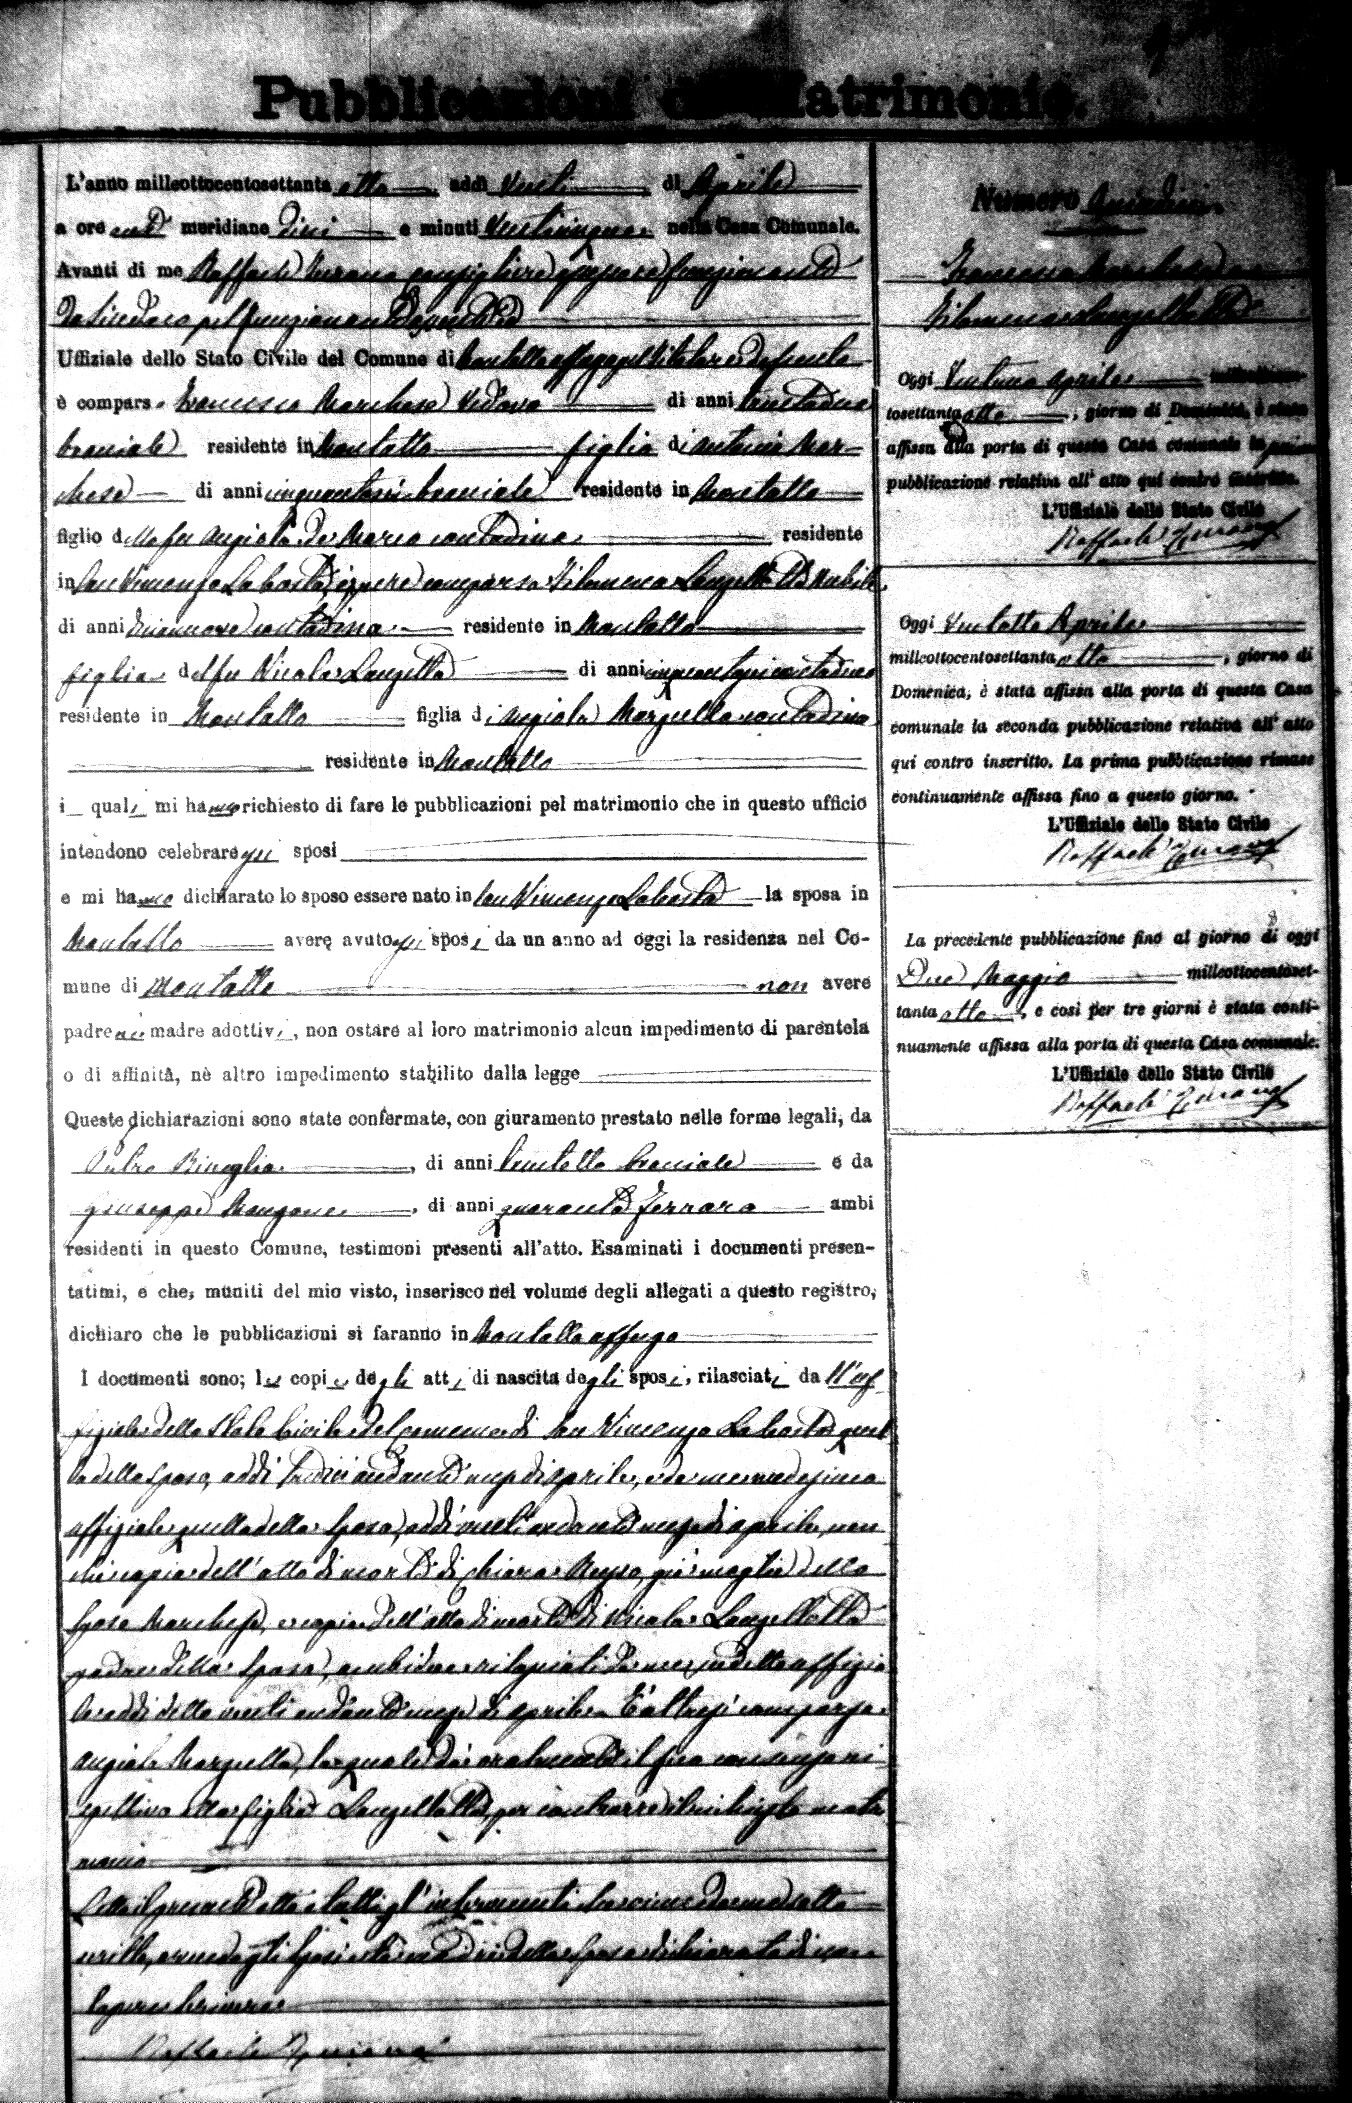 Pubblicazioni di Matrimonio.
L'anno milleottocentosettanta otto addì Venti di Aprile
a ore antᵉ meridiane dieci e minuti Venticinque nella Casa Comunale.
Avanti di me Raffaele consigliere funzionante
da Sindaco pel funzionante
Uffiziale dello Stato Civile del Comune di Montalto Uffugo pel titolare defunto
è compars o Francesco Marchese Vedovo di anni trentadue
bracciale residente in Montalto figlio di Antonio Mar-
chese di anni cinquantasei bracciale residente in Montalto
figlio della fu Angiola De Marco contadina residente
in San Vincenzo La Costa, è pure comparsa Filomena Lanzellotta Nubile
di anni diciannove contadina residente in Montalto
figlia del fu Nicola Lanzellotta di anni contadino
residente in Montalto figlia di Angiola Marzullo contadina
residente in Montalto
i quali mi hanno richiesto di fare le pubblicazioni pel matrimonio che in questo ufficio
intendono celebrare gli sposi
e mi hanno dichiarato lo sposo essere nato in San Vincenzo La Costa la sposa in
Montalto avere avuto gli sposi da un anno ad oggi la residenza nel Co-
mune di Montalto non avere
padre nè madre adottivi, non ostare al loro matrimonio alcun impedimento di parentela
o di affinità, nè altro impedimento stabilito dalla legge
Queste dichiarazioni sono state confermate, con giuramento prestato nelle forme legali, da
Pietro Bisceglia, di anni trentotto bracciale e da
Giuseppe Mangone, di anni quaranta Ferraro ambi
residenti in questo Comune, testimoni presenti all'atto. Esaminati i documenti presen-
tatimi, e che, muniti del mio visto, inserisco nel volume degli allegati a questo registro,
dichiaro che le pubblicazioni si faranno in Montalto Uffugo
I documenti sono; le copie degli atti di nascita degli sposi, rilasciati dall'uf-
fiziale dello Stato Civile del Comune di San Vincenzo La Costa quel-
lo dello Sposo, addì tredici andante mese di aprile, e da me medesimo
uffiziale quello della Sposa, addì venti andante mese di aprile, non
chè copia dell'atto di morte di Chiara già moglie dello
Sposo Marchese, e copia dell'atto di morte di Nicola Lanzellotta
padre della Sposa, ambidue rilasciati da me sudetto uffizia-
le addì detto venti andante mese di aprile. È altresì comparsa
Angiola Marzullo, la quale dà oralmente il suo consenso ri-
spettivo alla figlia Lanzellotta, per contrarre il matri-
monio
Letto il presente atto a tutti gl'intervenuti da me sotto-
scritto, avendo gli Sposi e la madre della Sposa dichiarato di non
sapere scrivere
Raffaele
Numero Quindici
Francesco Marchese con
Filomena Lanzellotta
Oggi Ventuno Aprile milleottocen-
tosettanta otto, giorno di Domenica, è stata
affissa alla porta di questa Casa comunale la prima
pubblicazione relativa all'atto qui contro inscritto.
L'Uffiziale dello Stato Civile
Raffaele
Oggi Ventotto Aprile
milleottocentosettanta otto, giorno di
Domenica, è stata affissa alla porta di questa Casa
comunale la seconda pubblicazione relativa all'atto
qui contro inscritto. La prima pubblicazione rimase
continuamente affissa fino a questo giorno.
L'Uffiziale dello Stato Civile
Raffaele
La precedente pubblicazione fino al giorno di oggi
Due Maggio milleottocentoset-
tanta otto, e così per tre giorni è stata conti-
nuamente affissa alla porta di questa Casa comunale.
L'Uffiziale dello Stato Civile
Raffaele